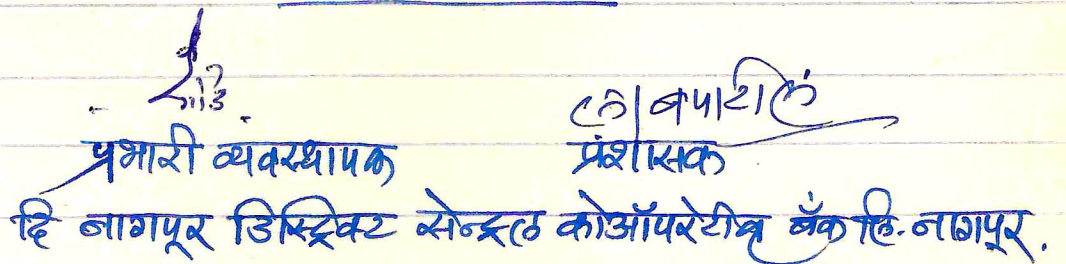 प्रभारी व्यवस्थापक प्रंशासक
दि नागपूर डिस्ट्रिक्ट सेन्ट्रल कोऑपरेटीव्ह बँक लि. नागपूर.